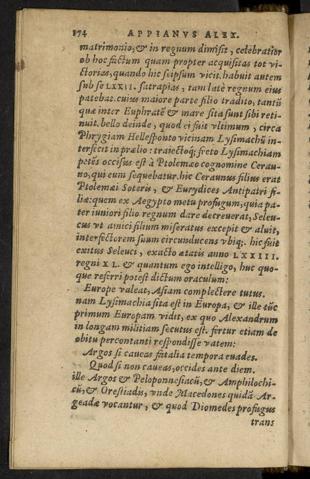 174 APPIANVS ALEX.
matrimonio, & in regnum dimisit, celebratior
ob hoc factum quam propter acquisitas tot vi-
ctorias, quando hic seipsum vicit. habuit autem
sub se LXXII. satrapias, tam latè regnum eius
patebat. cuius maiore parte filio tradito, tantũ
quæ inter Euphratẽ & mare sita sunt sibi reti-
nuit. bello deinde, quod ei fuit vltimum, circa
Phrygiam Hellesponto vicinam Lysimachũ in-
terfecit in prælio: traiectoq; freto Lysimachiam
petẽs occisus est à Ptolemæo cognomine Cerau-
no, qui eum sequebatur. hic Ceraunus filius erat
Ptolemæi Soteris, & Eurydices Antipatri fi-
liæ: quem ex Aegypto metu profugum, quia pa-
ter iuniori filio regnum dare decreuerat, Seleu-
cus vt amici filium miseratus excepit & aluit,
interfectorem suum circunducens vbiq;. hic fuit
exitus Seleuci, exacto ætatis anno LXXIII.
regni XL. & quantum ego intelligo, huc quo-
que referri potest dictum oraculum:
Europe valeat, Asiam complectere tutus.
nam Lysimachia sita est in Europa, & ille tũc
primum Europam vidit, ex quo Alexandrum
in longam militiam secutus est. fertur etiam de
obitu percontanti respondisse vatem:
Argos si caueas fatalia tempora euades.
Quod si non caueas, occides ante diem.
ille Argos & Peloponnesiacũ, & Amphilochi-
cũ, & Orestiadis, vnde Macedones quidã Ar-
geadæ vocantur, & quod Diomedes profugus
trans